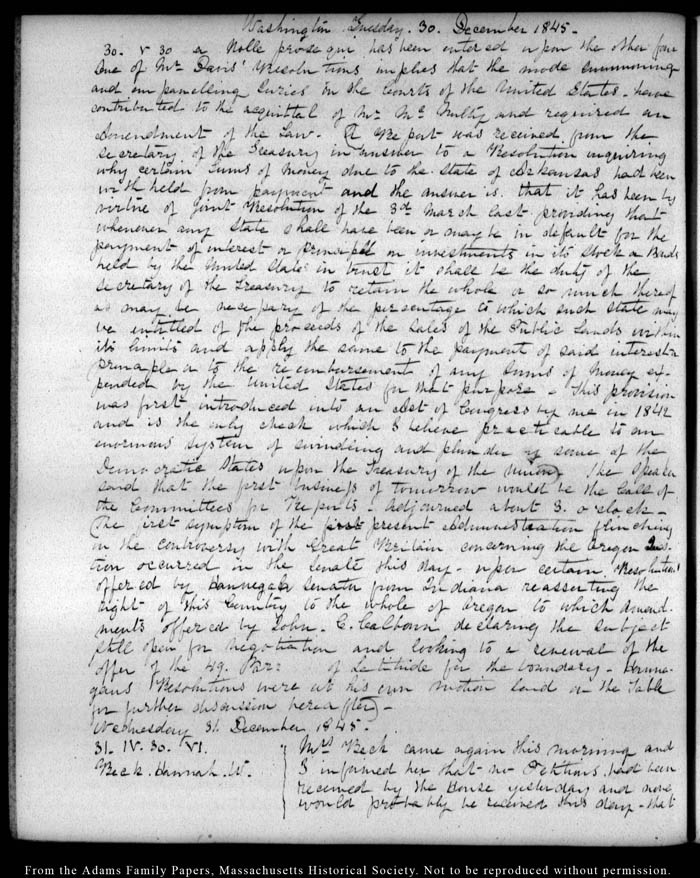 Washington Tuesday. 30. December 1845.
30. V 30 a Nolle prosequi has been entered upon the other four
One of Mr Davis' Resolutions implies that the mode summoning
and empanelling Juries in the Courts of the United States. have
contributed to the acquittal of Mr McNulty and required an
Amendment of the Law. (A Report was received from the
Secretary of the Treasury in answer to a Resolution inquiring
why certain sums of money due to the State of Arkansas had been
withheld from payment and the answer is that it has been by
virtue of Joint Resolution of the 3d March last providing that
whenever any State shall have been or may be in default for the
payment of interest or principal on investments in its Stock or Bonds
held by the United States in trust it shall be the duty of the
Secretary of the Treasury to retain the whole or so much thereof
as may be necessary of the percentage to which such State may
be entitled of the proceeds of the sales of the Public Lands within
its limits and apply the same to the payment of said interest or
principle or to the reimbursement of any sums of money ex-
pended by the United States for that purpose - This provision
was first introduced into an Act of Congress by me in 1842
and is the only check which I believe practicable to an
enormous system of swindling and plunder by some of the
Democratic States upon the Treasury of the Union) The Speaker
said that the first business of tomorrow would be the Call of
the Committees for Reports - Adjourned about 3. o'clock -
(The first symptom of the present Administration flinching
in the controversy with Great Britain concerning the Oregon Ques-
tion occurred in the Senate this day - upon certain Resolutions
offered by Hannegan Senator from Indiana reasserting the
right of this Country to the whole of Oregon to which amend-
ments offered by John. C. Calhoun declaring the subject
still open for negotiation and looking to a renewal of the
offer of the 49. Par: of Latitude for the boundary - Hanne-
gans Resolutions were at his own motion laid on the Table
for further discussion hereafter) -
Wednesday 31. December 1845.
31. IV. 30. VI.
Beck. Hannah. W.
Mrs Beck came again this morning and
I informed her that no Petitions had been
received by the House yesterday and none
would probably be received this day - that
From the Adams Family Papers, Massachusetts Historical Society. Not to be reproduced without permission.